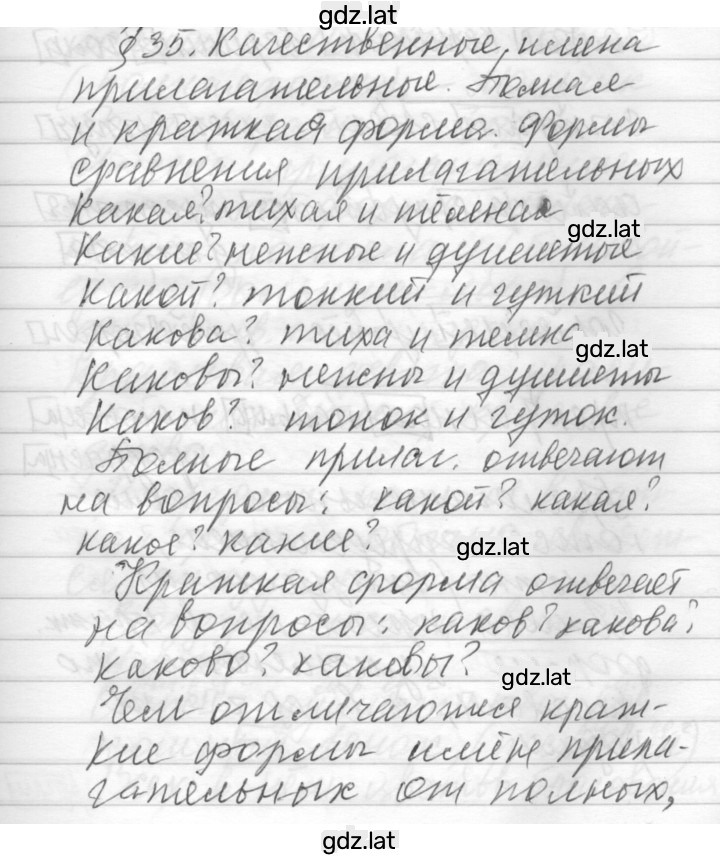 gdz.lat
§ 35. Качественные имена
прилагательные. Полная
и краткая форма. Формы
сравнения прилагательных
Какая? тихая и тёмная
gdz.lat
Какие? нежные и душистые
Какой? тонкий и гуткий
Какова? тиха и темна
gdz.lat
Каковы? нежны и душисты
Каков? тонок и гуток.
Полные прилаг. отвечают
на вопросы: какой? какая?
какое? какие?
gdz.lat
Краткая форма отвечает
на вопросы: каков? какова?
каково? каковы?
gdz.lat
Чем отличаются крат-
кие формы имён прила-
гательных от полных,
gdz.lat